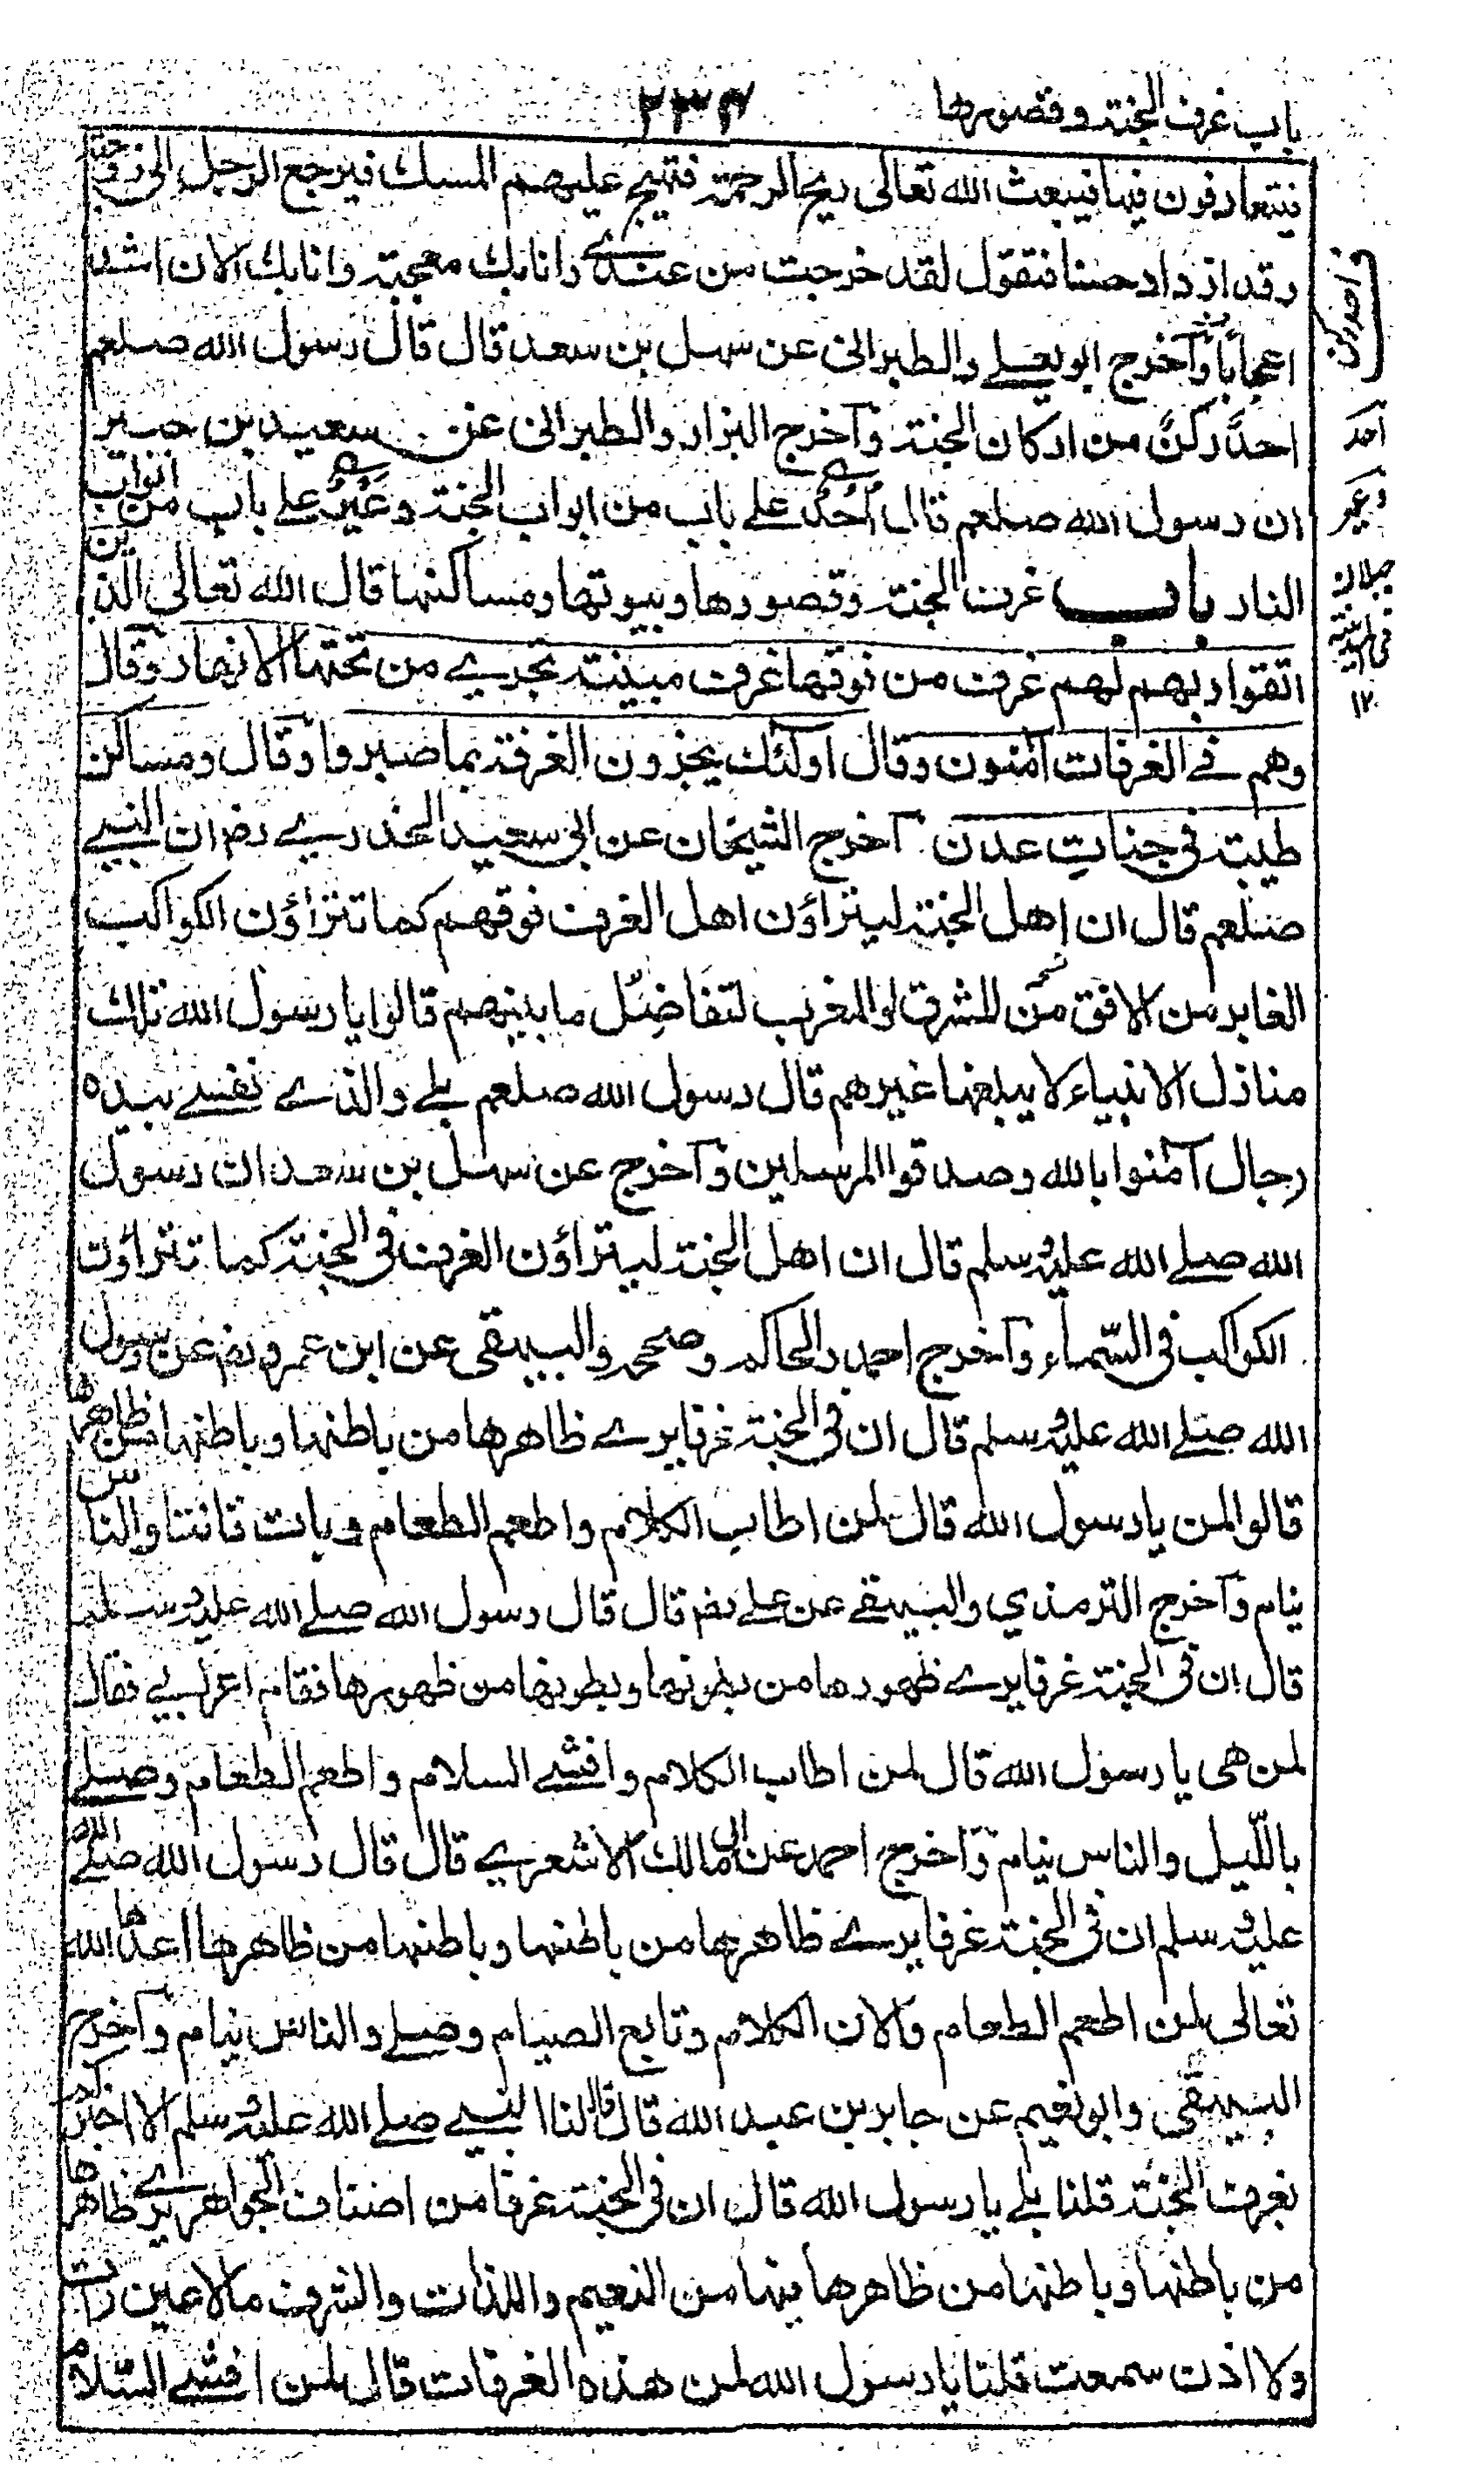 باب غرف الجنة وقصورها
۲۳۴
فيتعارفون فيها فيبعث الله تعالى ريح الرحمة فتهيج عليهم المسك فيرجع الرجل الى زوجته
وقد ازداد حسنا فتقول لقد خرجت من عندى وانا بك معجبة وانا بك الان اشد
اعجابا وآخرج ابو يعلے والطبرانى عن سهل بن سعد قال قال رسول الله صلعم
احد ركن من اركان الجنة وآخرج البزار والطبرانى عن سعيد بن جبير
ان رسول الله صلعم قال اُحُد علے باب من ابواب الجنة وعَيْر علے باب من ابواب
النار باب غرف الجنة وقصورها وبيوتها ومساكنها قال الله تعالى الذين
اتقوا ربهم لهم غرف من فوقها غرف مبنية تجرے من تحتها الانهار وقال
وهم فے الغرفات آمنون وقال اولئك يجزون الغرفة بما صبروا وقال ومساكن
طيبة فى جنات عدن آخرج الشيخان عن ابى سعيد الخدرے رض ان النبے
صلعم قال ان اهل الجنة ليتراؤن اهل الغرف فوقهم كما تتراؤن الكواكب
الغابر من الافق من المشرق او المغرب لتفاضل ما بينهم قالوا يا رسول الله تلك
منازل الانبياء لا يبلغها غيرهم قال رسول الله صلعم بلے والذے نفسے بيده
رجال آمنوا بالله وصدقوا المرسلين وآخرج عن سهل بن سعد ان رسول
الله صلے الله عليه وسلم قال ان اهل الجنة ليتراؤن الغرف فى الجنة كما تتراؤن
الكواكب فى السّماء وآخرج احمد والحاكم وصححه والبيهقى عن ابن عمرو رض عن رسول
الله صلے الله عليه وسلم قال ان فى الجنة غرفا يرے ظاهرها من باطنها وباطنها من ظاهرها
قالوا لمن يا رسول الله قال لمن اطاب الكلام واطعم الطعام وبات قانتا والناس
نيام وآخرج الترمذي والبيهقے عن علے رض قال قال رسول الله صلے الله عليه وسلم
قال ان فى الجنة غرفا يرے ظهورها من بطونها وبطونها من ظهورها فقام اعرابے فقال
لمن هى يا رسول الله قال لمن اطاب الكلام وافشے السلام واطعم الطعام وصلے
بالليل والناس نيام وآخرج احمد عن ابى مالك الاشعرے قال قال رسول الله صلے الله
عليه وسلم ان فى الجنة غرفا يرے ظاهرها من باطنها وباطنها من ظاهرها اعدها الله
تعالى لمن اطعم الطعام والان الكلام وتابع الصيام وصلے والناس نيام وآخرج
البيهقى وابو نعيم عن جابر بن عبد الله قال قال لنا النبے صلے الله عليه وسلم الا اخبركم
بغرف الجنة قلنا بلے يا رسول الله قال ان فى الجنة غرفا من اصناف الجواهر يرے ظاهرها
من باطنها وباطنها من ظاهرها فيها من النعيم واللذات والشرف ما لا عين رات
ولا اذن سمعت قلنا يا رسول الله لمن هذه الغرفات قال لمن افشے السّلام
احد ركن
احد
وعير
جبلان
فى المدينة
۱۲